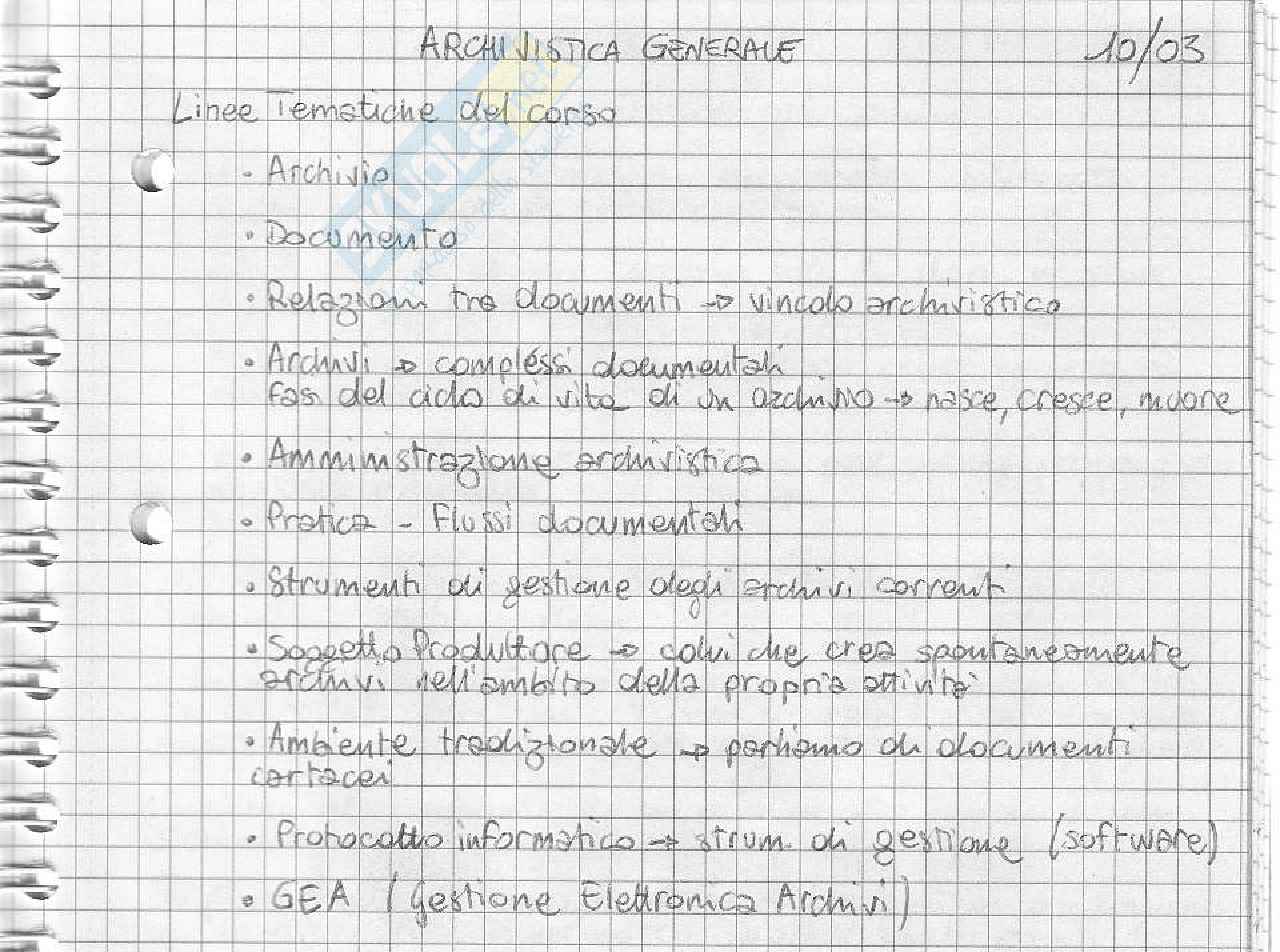 ARCHIVISTICA GENERALE 10/03
Linee Tematiche del corso
- Archivio
• Documento
• Relazioni tra documenti → vincolo archivistico
• Archivi → complessi documentali
fasi del ciclo di vita di un archivio → nasce, cresce, muore
• Amministrazione archivistica
• Pratica - Flussi documentali
• Strumenti di gestione degli archivi correnti
• Soggetto Produttore → colui che crea spontaneamente
archivi nell'ambito della propria attività
• Ambiente tradizionale → parliamo di documenti
cartacei
• Protocollo informatico → strum. di gestione (software)
• GEA (Gestione Elettronica Archivi)
skuola.net